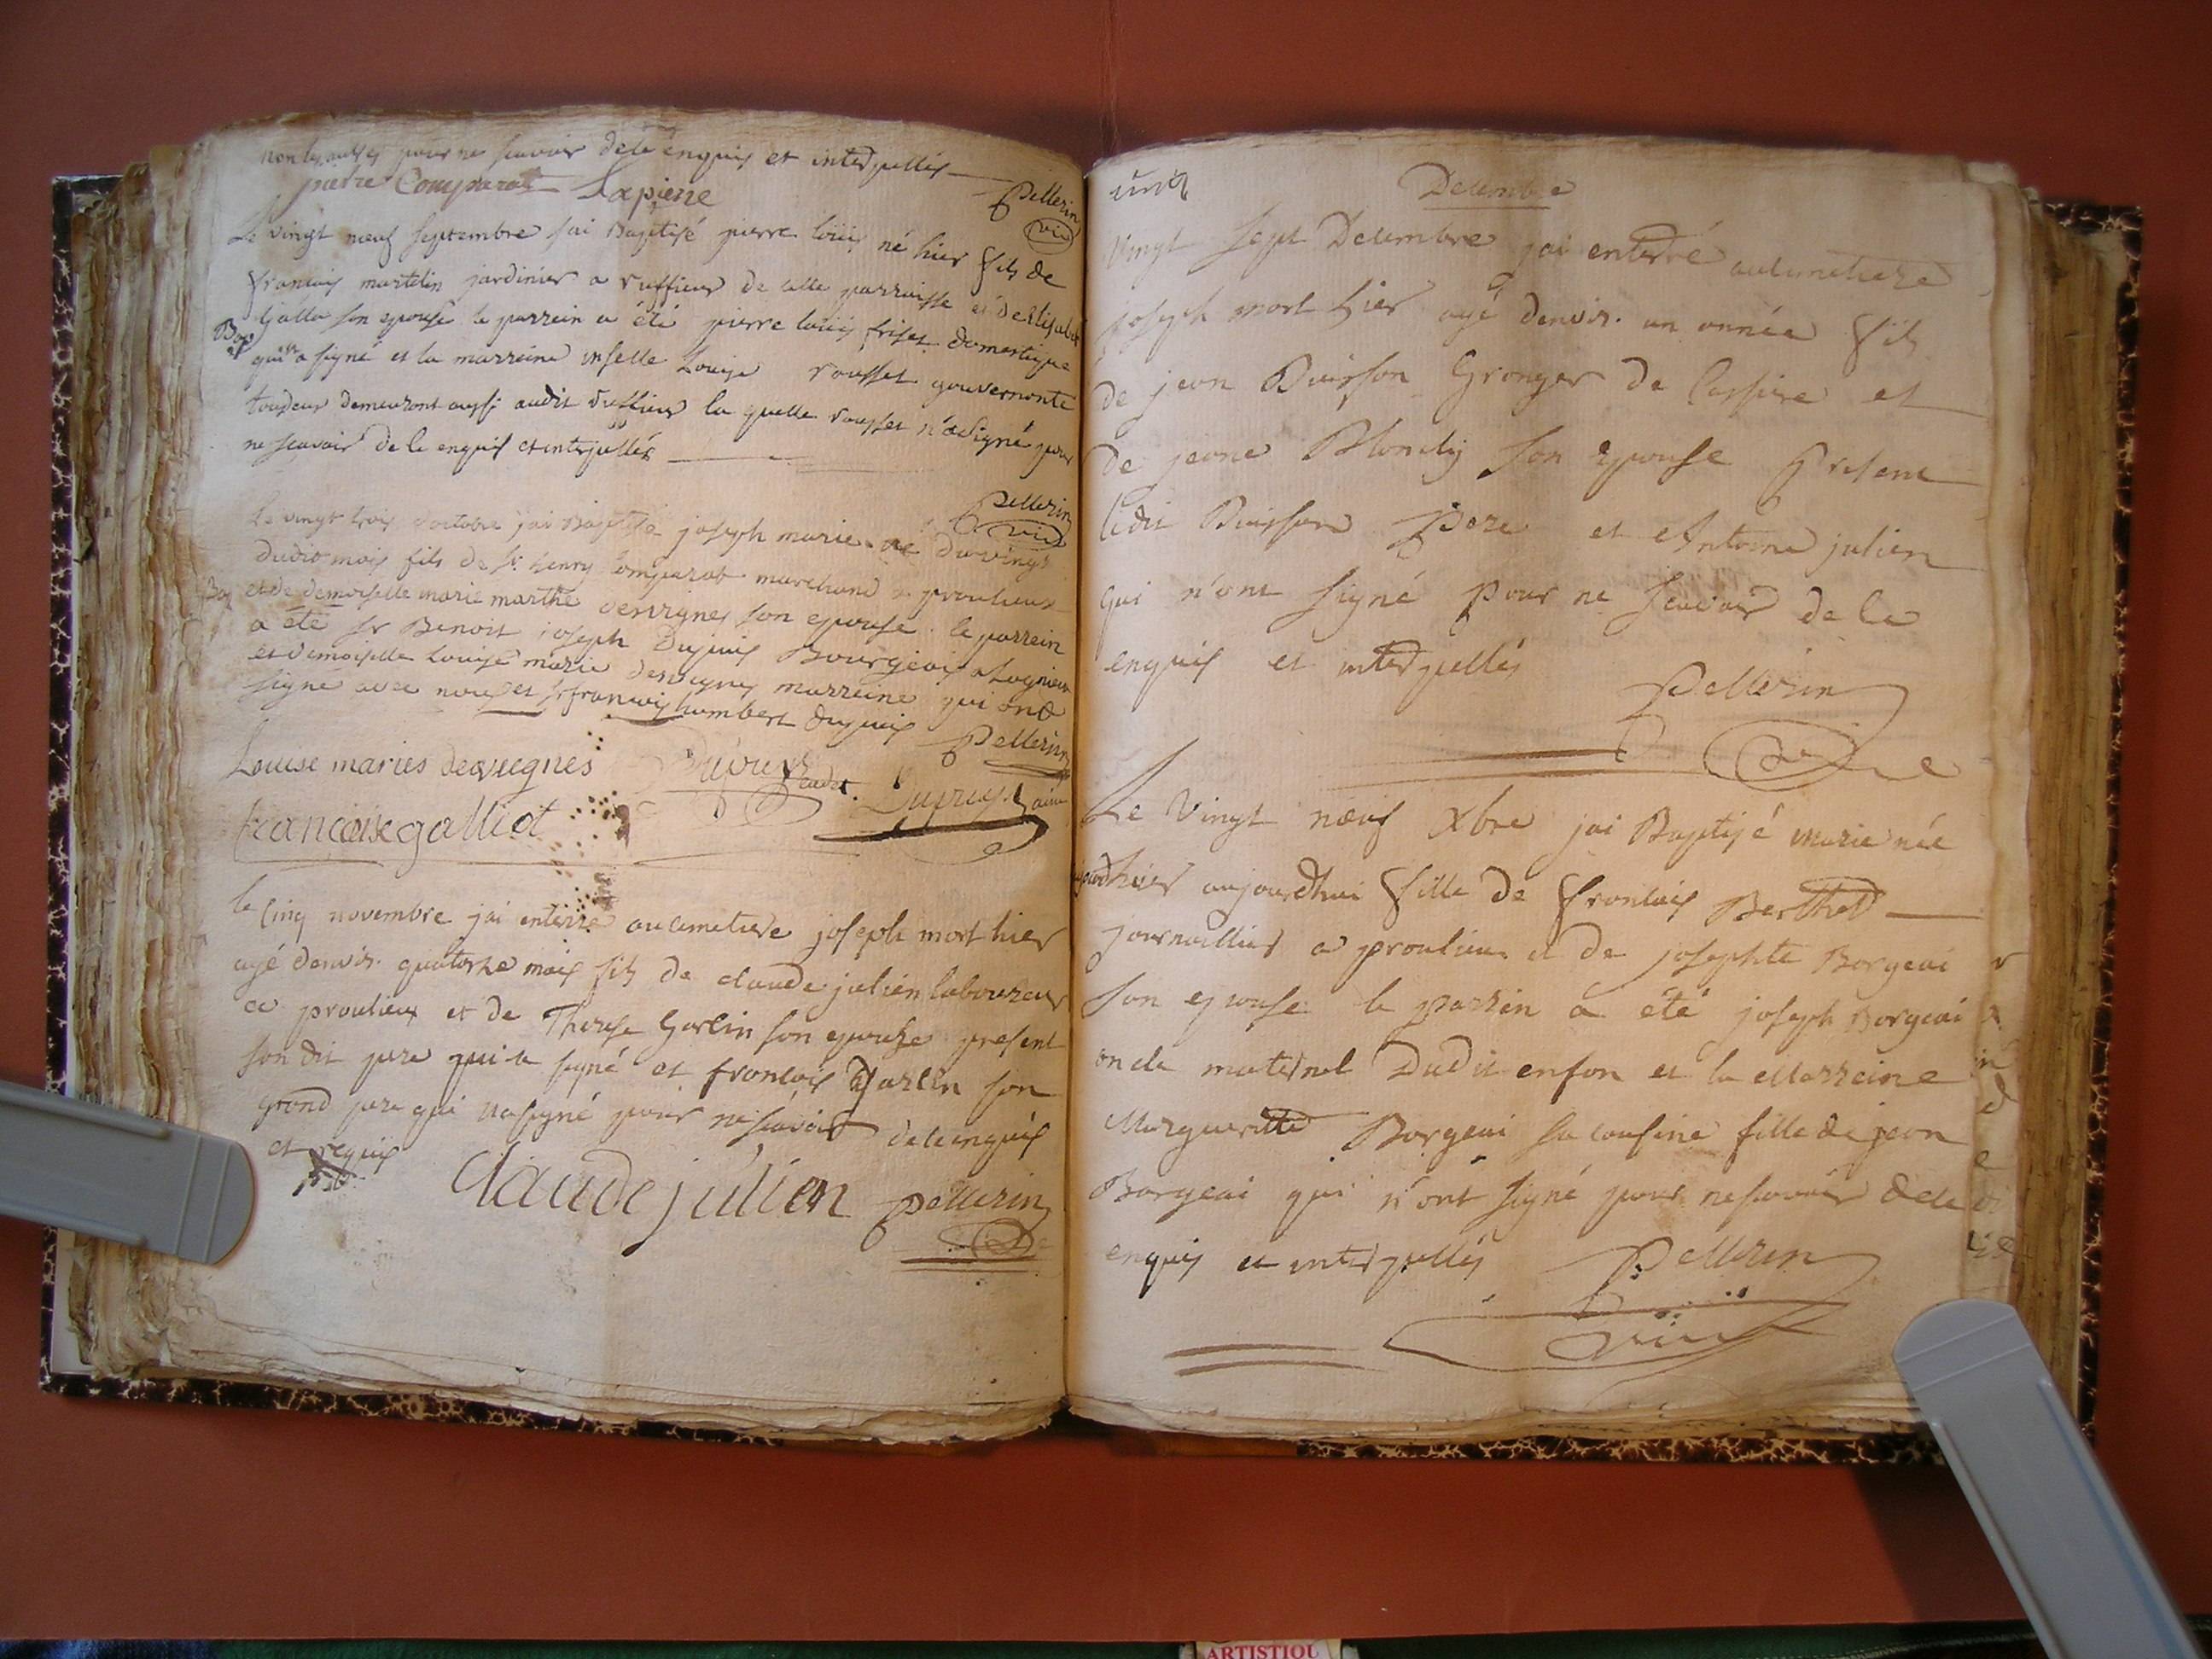 pour ne scavoir dele enquis et interpellés
pierre Comparat Lapierre
Pellerin
vic
Le vingt nœuf septembre jai Baptisé pierre loüis né hier fils de
francois martelin jardinier a ruffieux de cette parroisse et
son epouse le parrein a été pierre loüis friset domestique
Bap
qui a signé et la marreine Louise rousset gouvernante
demeurant aussi audit ruffieux la quelle rousset n'a signé pour
ne scavoir de le enquis et interpellés
Pellerin
vic
Le vingt trois octobre jai Baptisé joseph marie né du vingt
dudit mois fils de sr henry Comparat marchand a proulieux
Bap
et de demoiselle marie marthe dervignes son epouse le parrein
a été sr Benoit joseph Dupuis Bourgeois a Lagnieu
et demoiselle Louise marie marreine qui ont
signé avec nous et sr francois humbert dupuis
Pellerin
Louise maries
Dupuys cadet
Dupuys laine
francoise galliot
le cinq novembre jai enterré au cimetiere joseph mort hier
agé denvir. quatorze mois fils de claude julien laboureur
a proulieux et de Therese Garlin son epouse present
son dit pere qui a signé et francois Garlin son
grand pere qui na signé pour ne scavoir de le enquis
et requis
Claude julien
Pellerin
vic
Decembre
Vingt sept Decembre jai enterré au cimetiere
joseph mort hier agé denvir. un année fils
de jean Buisson Granger de lassiere et
de jeane Blondy son epouse present
ledit Buisson pere et Antoine julien
qui n'ont signé pour ne scavoir de le
enquis et interpellés
Pellerin
vic
Le Vingt nœuf Xbre jai Baptisé marie née
aujourdhui fille de francois Berthet
journallier a proulieu et de josephte Borgeai
son epouse le parrin a été joseph Borgeai
oncle maternel Dudit enfan et la Marreine
Margueritte Borgeai sa cousine fille de jean
Borgeai qui n'ont signé pour ne scavoir dele
enquis et interpellés
Pellerin
vic
ARTISTIQU